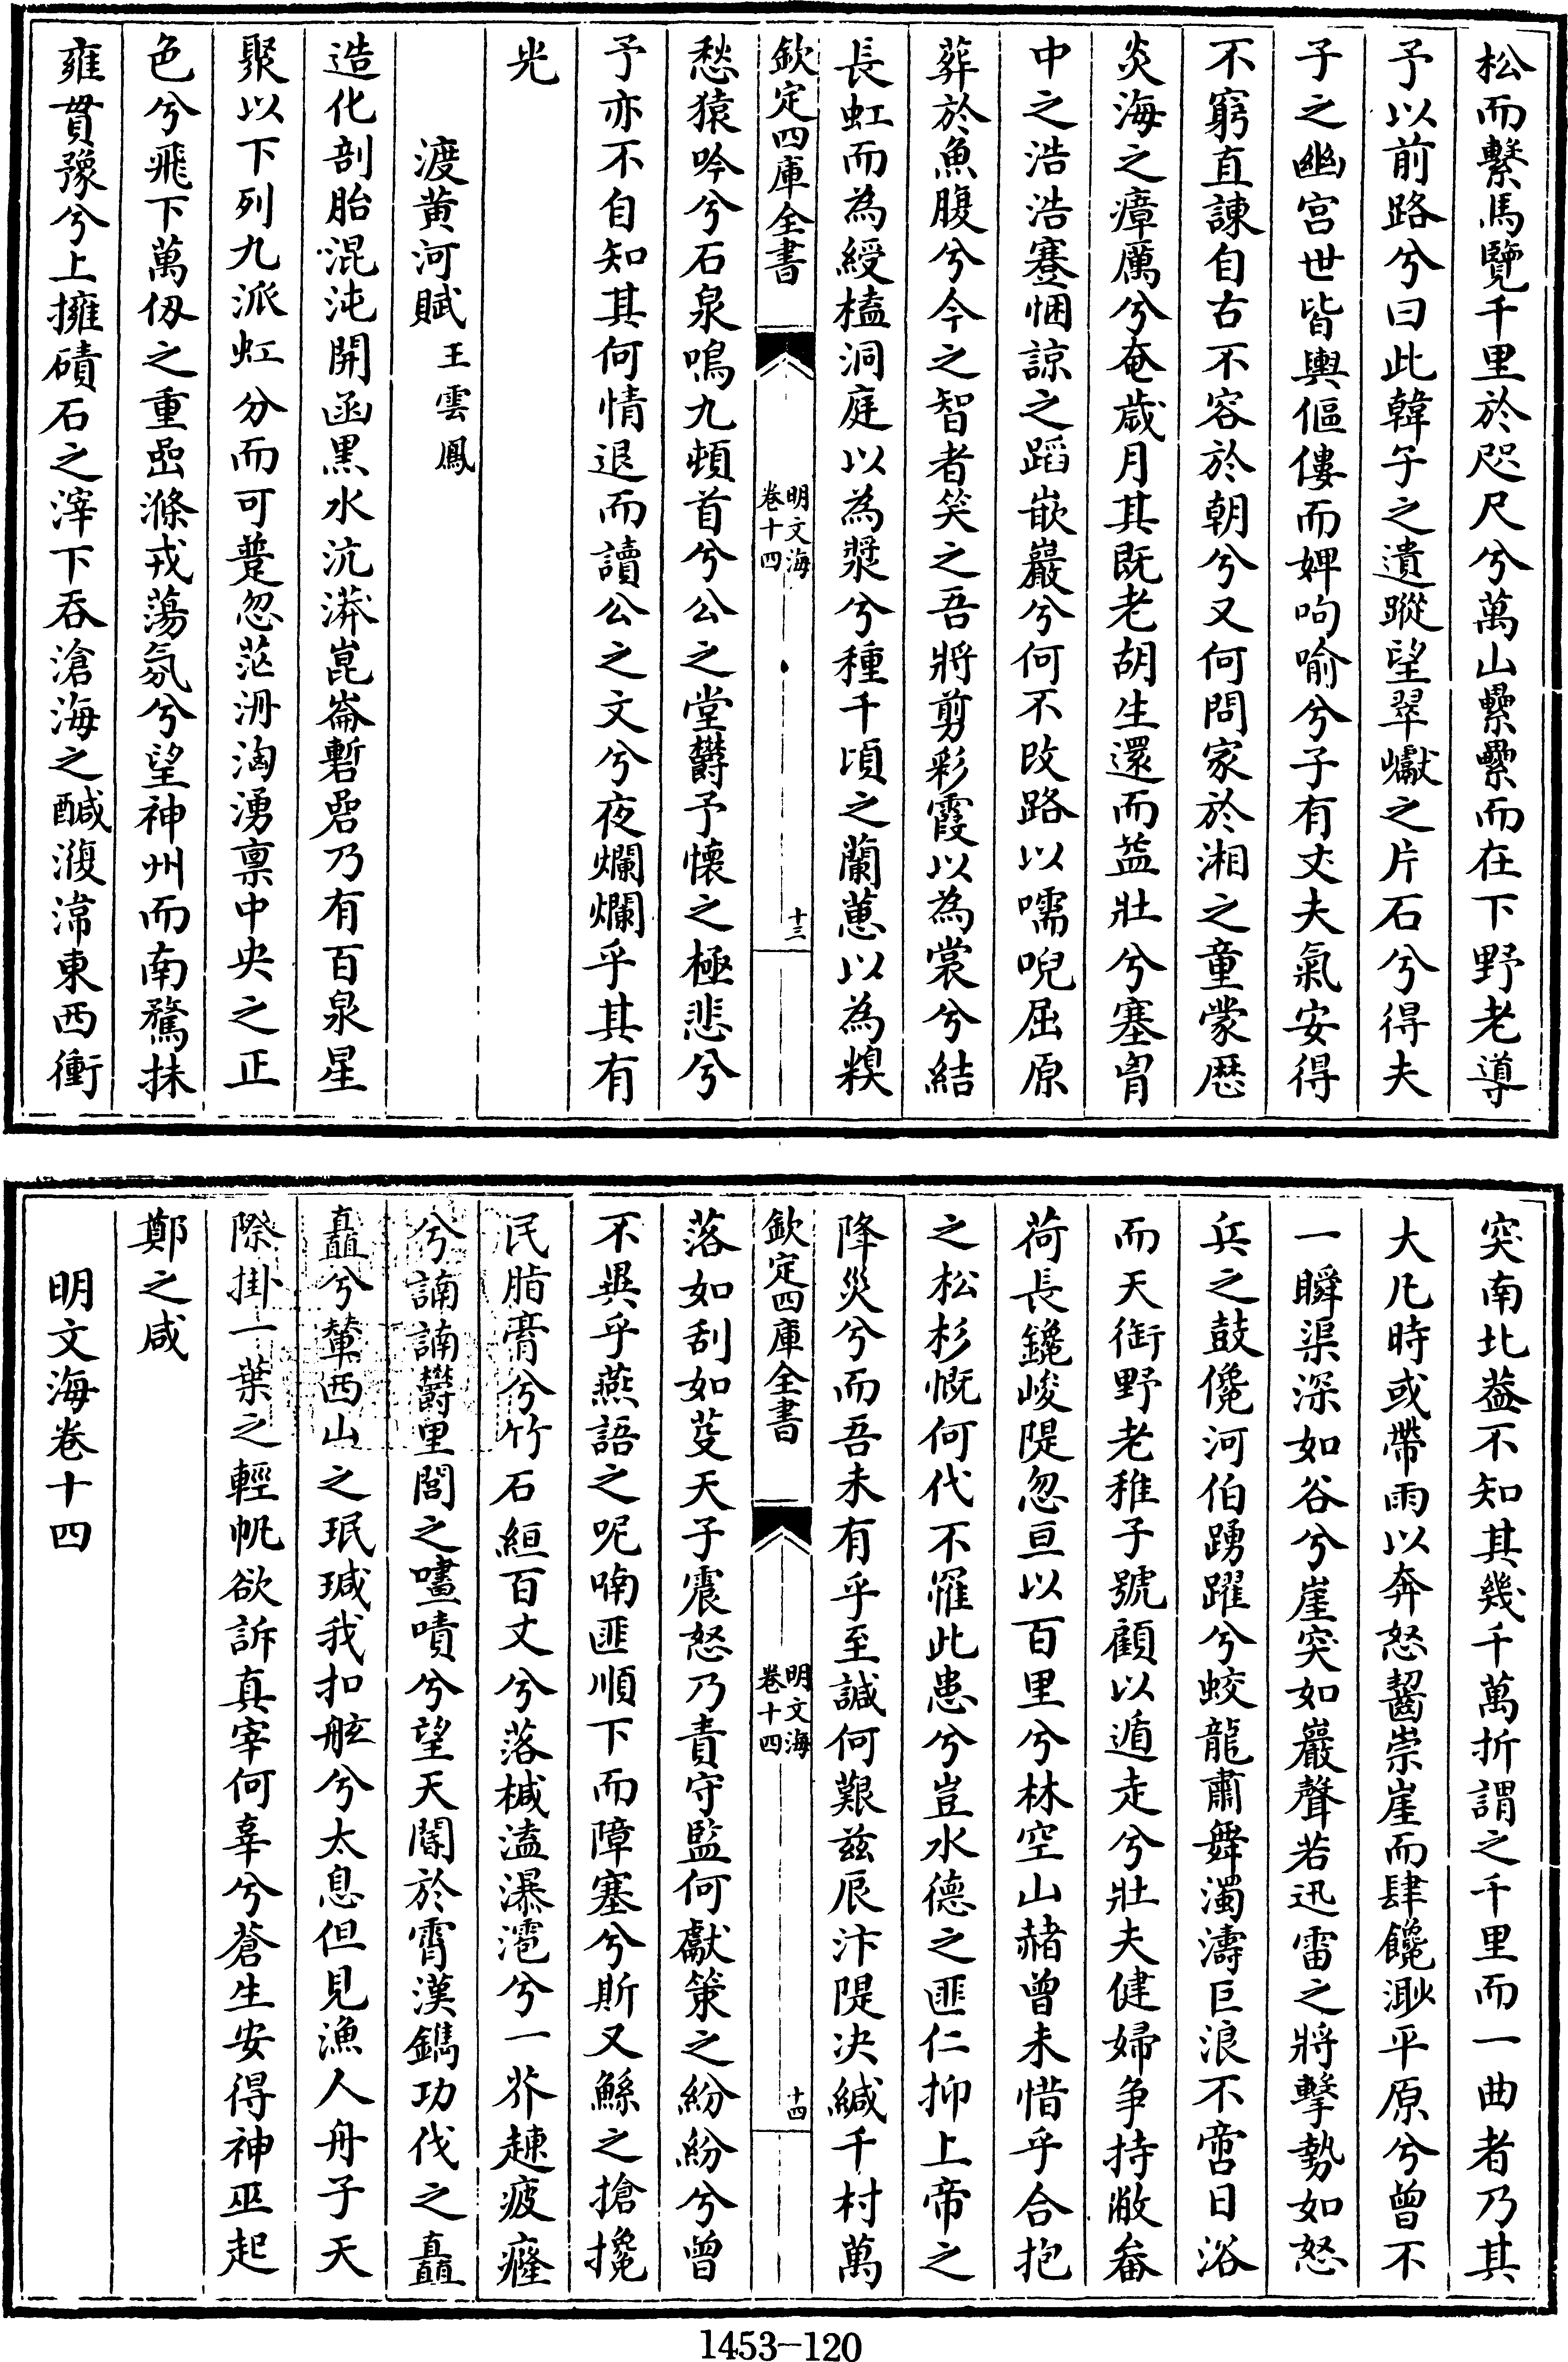 松而繫馬覽千里於咫尺兮萬山纍纍而在下野老導
予以前路兮曰此韓子之遺蹤望翠巘之片石兮得夫
子之幽宫世皆輿傴僂而婢呴喻兮子有丈夫氣安得
不窮直諫自古不容於朝兮又何問家於湘之童蒙歴
炎海之瘴厲兮奄歲月其既老胡生還而益壯兮塞胷
中之浩浩蹇悃諒之蹈嶔巖兮何不改路以嚅唲屈原
葬於魚腹兮今之智者笑之吾將剪彩霞以為裳兮結
長虹而為綬榼洞庭以為漿兮種千頃之蘭蕙以為糗
欽定四庫全書
明文海
卷十四
十三
愁猿吟兮石泉鳴九頓首兮公之堂鬱予懷之極悲兮
予亦不自知其何情退而讀公之文兮夜爛爛乎其有
光
渡黄河賦 王雲鳳
造化剖胎混沌開函黒水沆漭崑崙嶄碞乃有百泉星
聚以下列九派虹分而可躉忽茫泋淘湧禀中央之正
色兮飛下萬仭之重嵒滌戎蕩氛兮望神州而南騖抹
雍貫豫兮上擁磧石之滓下吞滄海之醎澓㵂東西衝
突南北葢不知其幾千萬折謂之千里而一曲者乃其
大凡時或帶雨以奔怒齧崇崖而肆饞渺平原兮曾不
一瞬渠深如谷兮崖突如巖聲若迅雷之將擊勢如怒
兵之鼓儳河伯踴躍兮蛟龍肅舞濁濤巨浪不啻日浴
而天銜野老稚子號顧以遁走兮壯夫健婦争持敝畚
荷長鑱峻隄忽亘以百里兮林空山赭曾未惜乎合抱
之松杉慨何代不罹此患兮豈水德之匪仁抑上帝之
降災兮而吾未有乎至諴何艱兹辰汴隄决緘千村萬
欽定四庫全書
明文海
卷十四
十四
落如刮如芟天子震怒乃責守監何獻策之紛紛兮曾
不異乎燕語之呢喃匪順下而障塞兮斯又鯀之搶攙
民脂膏兮竹石絙百丈兮落椷溘瀑灂兮一芥趚疲癃
兮諵諵鬱里閭之嚍嘖兮望天闔於霄漢鐫功伐之矗
矗兮輦西山之珉瑊我扣舷兮太息但見漁人舟子天
際掛一葉之輕帆欲訴真宰何辜兮蒼生安得神巫起
鄭之咸
明文海卷十四
1453-120